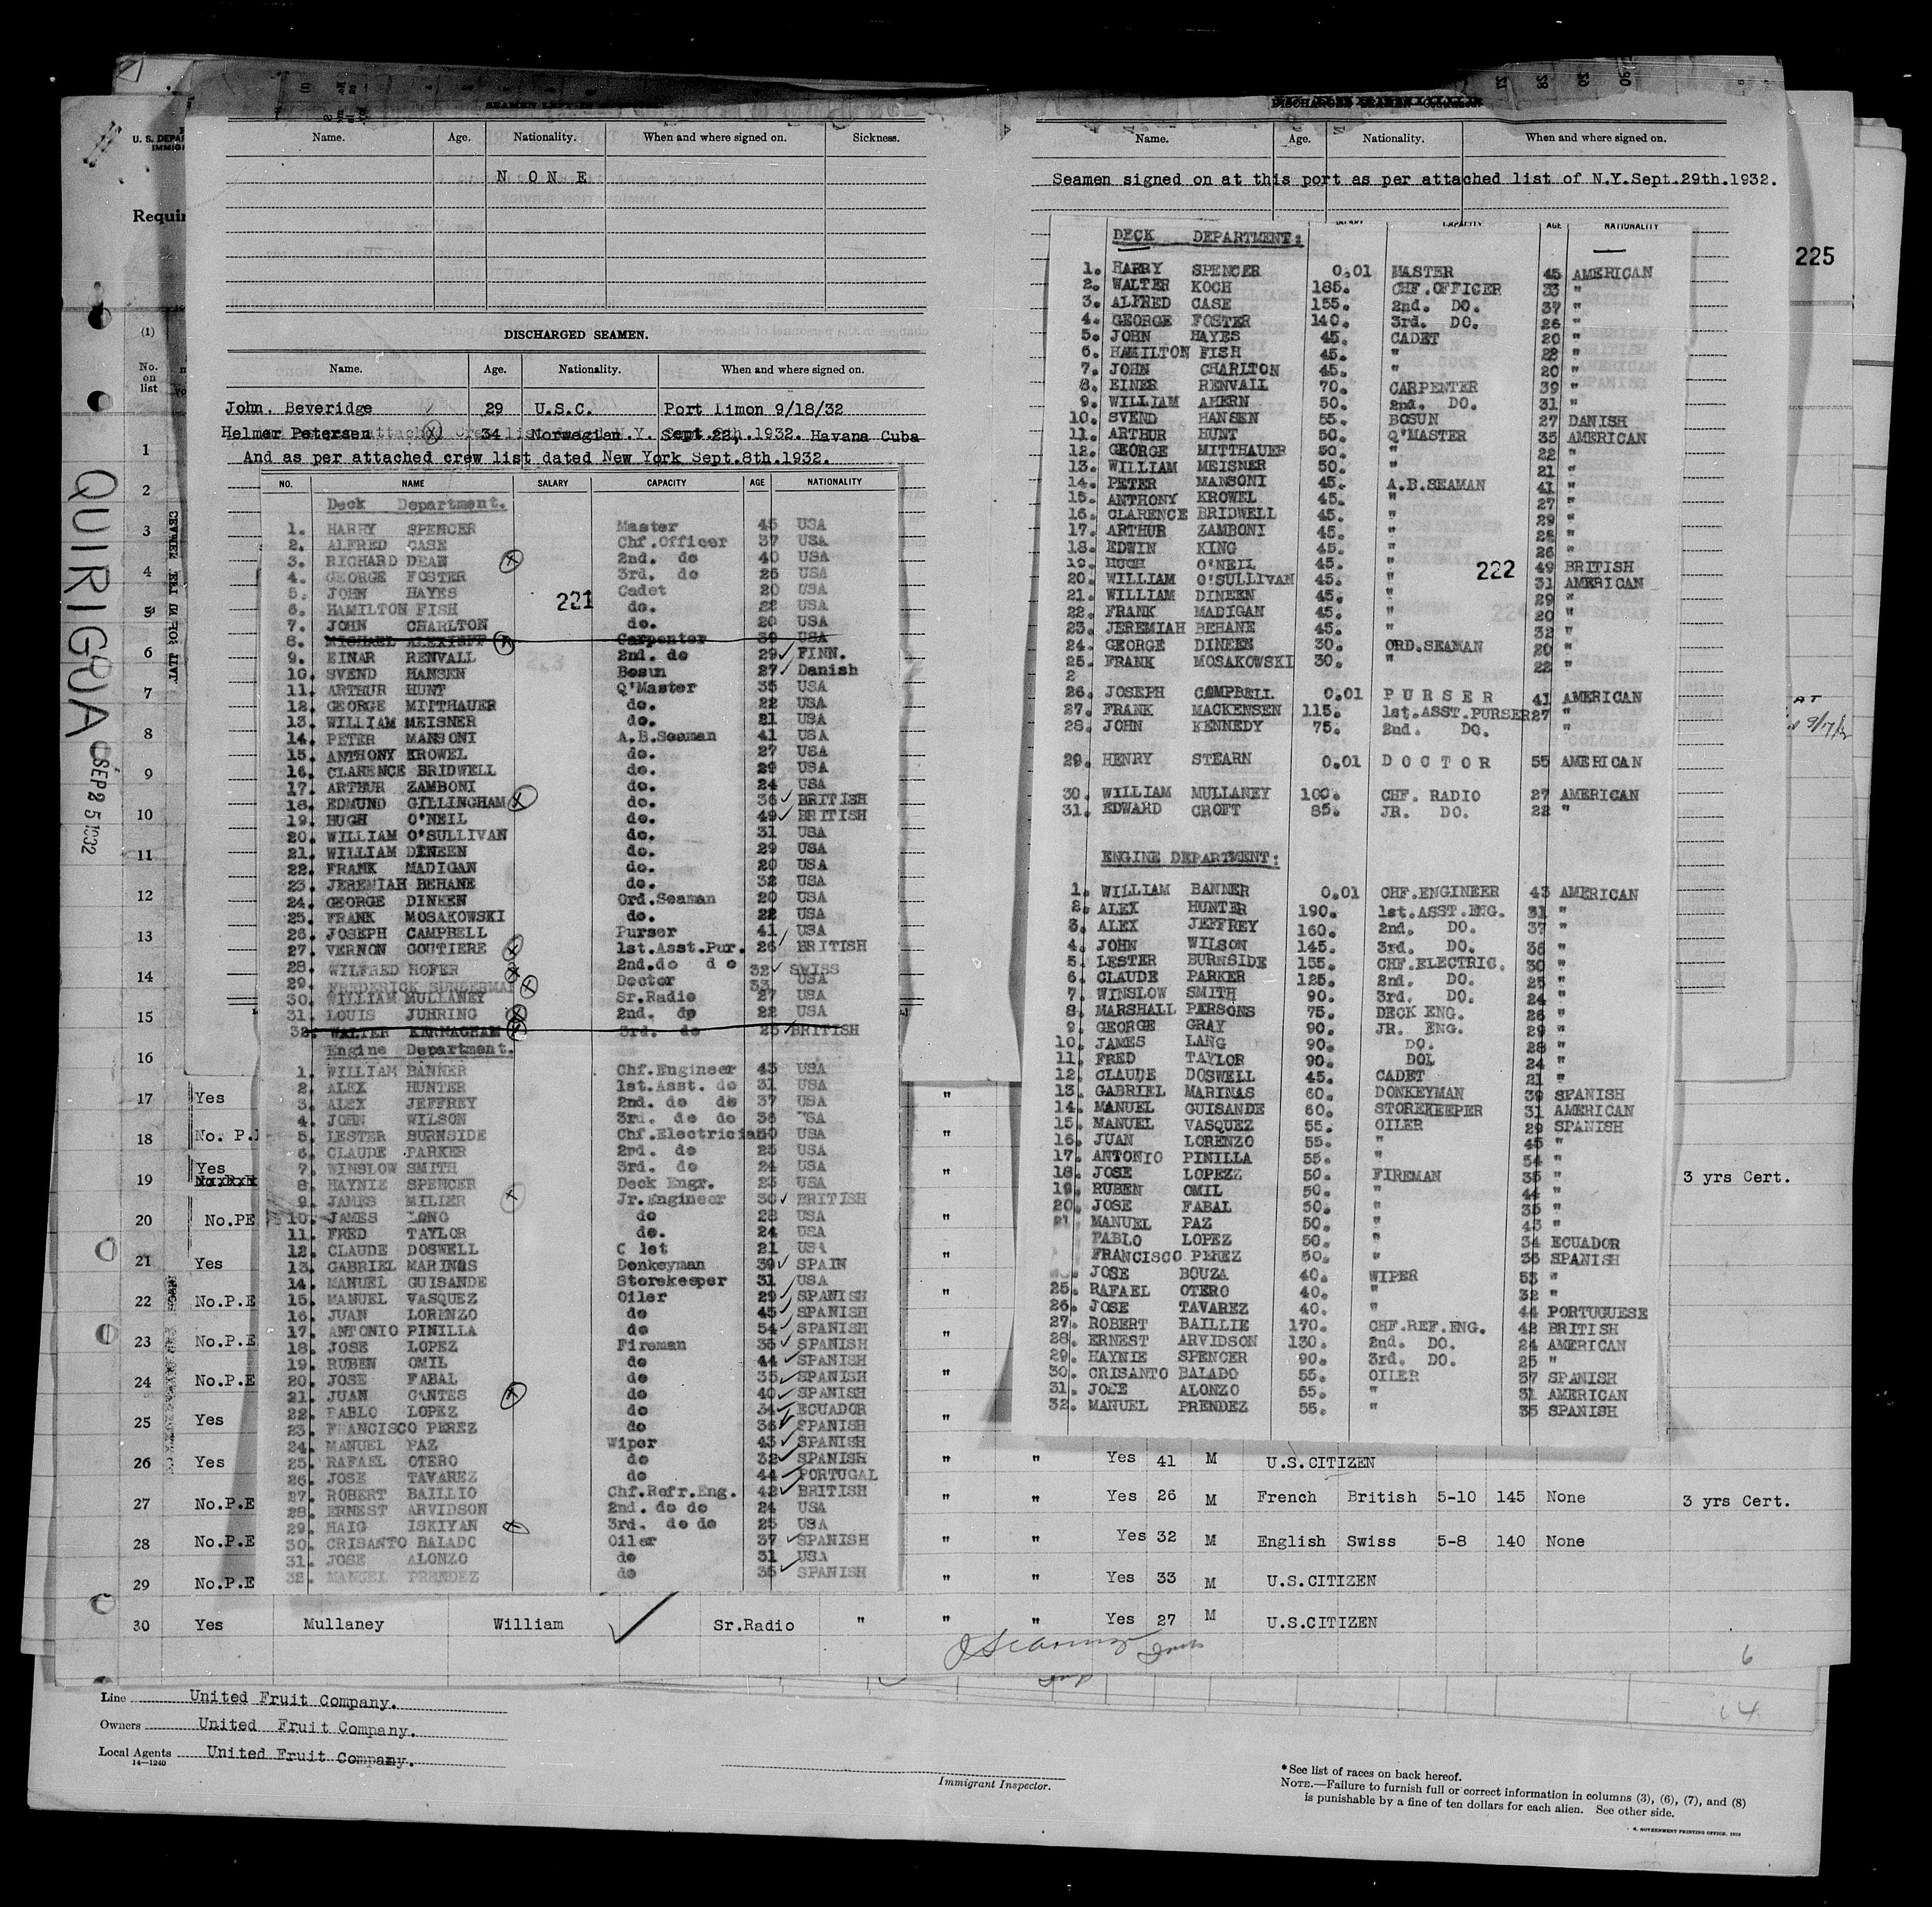 SEAMEN LEFT IN
Name. Age. Nationality. When and where signed on. Sickness.
N O N E
DISCHARGED SEAMEN.
Name. Age. Nationality. When and where signed on.
John. Beveridge 29 U.S.C. Port Limon 9/18/32
Helmer Petersen 34 Norwegian Sept 22, 1932. Havana Cuba
And as per attached crew list dated New York Sept.8th.1932.
NO. NAME SALARY CAPACITY AGE NATIONALITY
Deck Department.
1. HARRY SPENCER Master 45 USA
2. ALFRED CASE Chf.Officer 37 USA
3. RICHARD DEAN 2nd. do 40 USA
4. GEORGE FOSTER 3rd. do 26 USA
5. JOHN HAYES Cadet 20 USA
221
6. HAMILTON FISH do. 22 USA
7. JOHN CHARLTON do. 20 USA
8. MICHAEL ALEXIEFF Carpenter 39 USA
9. EINAR RENVALL 2nd. do 29 FINN.
10. SVEND HANSEN Bosun 27 Danish
11. ARTHUR HUNT Q'Master 35 USA
12. GEORGE MITTHAUER do. 22 USA
13. WILLIAM MEISNER do. 21 USA
14. PETER MANSONI A.B.Seaman 41 USA
15. ANTHONY KROWEL do. 27 USA
16. CLARENCE BRIDWELL do. 29 USA
17. ARTHUR ZAMBONI do. 24 USA
18. EDMUND GILLINGHAM do. 36 BRITISH
19. HUGH O'NEIL do. 49 BRITISH
20. WILLIAM O'SULLIVAN do. 31 USA
21. WILLIAM DINEEN do. 29 USA
22. FRANK MADIGAN do. 20 USA
23. JEREMIAH BEHANE do. 32 USA
24. GEORGE DINEEN Ord.Seaman 20 USA
25. FRANK MOSAKOWSKI do. 22 USA
26. JOSEPH CAMPBELL Purser 41 USA
27. VERNON GOUTIERE 1st.Asst.Pur. 26 BRITISH
28. WILFRED HOFER 2nd.do do 32 SWISS
29. FREDERICK SUNDERMAN Doctor 33 USA
30. WILLIAM MULLANEY Sr.Radio 27 USA
31. LOUIS JUHRING 2nd. do 22 USA
32. WALTER KERNAGHAM 3rd. do 25 BRITISH
Engine Department.
1. WILLIAM BANNER Chf.Engineer 43 USA
2. ALEX HUNTER 1st.Asst. do 31 USA
3. ALEX JEFFREY 2nd. do do 37 USA
4. JOHN WILSON 3rd. do do 36
5. LESTER BURNSIDE Chf.Electrician 30 USA
6. CLAUDE PARKER 2nd. do 25 USA
7. WINSLOW SMITH 3rd. do 24 USA
8. HAYNIE SPENCER Deck Engr. 23 USA
9. JAMES MILIER Jr.Engineer 30 BRITISH
10. JAMES LONG do 28 USA
11. FRED TAYLOR do. 24 USA
12. CLAUDE DOSWELL C let 21 USA
13. GABRIEL MARINOS Donkeyman 39 SPAIN
14. MANUEL GUISANDE Storekeeper 31 USA
15. MANUEL VASQUEZ Oiler 29 SPANISH
16. JUAN LORENZO do 45 SPANISH
17. ANTONIO PINILLA do 54 SPANISH
18. JOSE LOPEZ Fireman 35 SPANISH
19. RUBEN OMIL do 44 SPANISH
20. JOSE FABAL do 35 SPANISH
21. JUAN CANTES do 40 SPANISH
22. PABLO LOPEZ do 34 ECUADOR
23. FRANCISCO PEREZ do 36 SPANISH
24. MANUEL PAZ Wiper 43 SPANISH
25. RAFAEL OTERO do 32 SPANISH
26. JOSE TAVAREZ do 44 PORTUGAL
27. ROBERT BAILLIO Chf.Refr.Eng. 42 BRITISH
28. ERNEST ARVIDSON 2nd. do do 24 USA
29. HAIG ISKIYAN 3rd. do do 25 USA
30. CRISANTO BALADO Oiler 37 SPANISH
31. JOSE ALONZO do 31 USA
32. MANUEL PRENDEZ do 35 SPANISH
DISCHARGED SEAMEN
Name. Age. Nationality. When and where signed on.
Seamen signed on at this port as per attached list of N.Y.Sept.29th.1932.
SALARY CAPACITY AGE NATIONALITY
DECK DEPARTMENT:
225
1. HARRY SPENCER 0.01 MASTER 45 AMERICAN
2. WALTER KOCH 185. CHF.OFFICER 33 "
3. ALFRED CASE 155. 2nd. DO. 37 "
4. GEORGE FOSTER 140. 3rd. DO. 26 "
5. JOHN HAYES 45. CADET 20 "
6. HAMILTON FISH 45. " 22 "
7. JOHN CHARLTON 45. " 20 "
8. EINER RENVALL 70. CARPENTER 39 "
9. WILLIAM AHERN 50. 2nd. DO. 31 "
10. SVEND HANSEN 55. BOSUN 27 DANISH
11. ARTHUR HUNT 50. Q'MASTER 35 AMERICAN
12. GEORGE MITTHAUER 50. " 22 "
13. WILLIAM MEISNER 50. " 21 "
14. PETER MANSONI 45. A.B.SEAMAN 41 "
15. ANTHONY KROWEL 45. " 27 "
16. CLARENCE BRIDWELL 45. " 29 "
17. ARTHUR ZAMBONI 45. " 28 "
18. EDWIN KING 45. " 26 "
19. HUGH O'NEIL 45. " 49 BRITISH
222
20. WILLIAM O'SULLIVAN 45. " 31 AMERICAN
21. WILLIAM DINEEN 45. " 29 "
22. FRANK MADIGAN 45. " 20 "
23. JEREMIAH BEHANE 45. " 32 "
24. GEORGE DINEEN 30. ORD.SEAMAN 20 "
25. FRANK MOSAKOWSKI 30. " 22 "
2
26. JOSEPH CAMPBELL 0.01 P U R S E R 41 AMERICAN
27. FRANK MACKENSEN 115. 1st.ASST.PURSER 27 "
28. JOHN KENNEDY 75. 2nd. DO. "
29. HENRY STEARN 0.01 D O C T O R 55 AMERICAN
30. WILLIAM MULLANEY 100. CHF. RADIO 27 AMERICAN
31. EDWARD CROFT 85. JR. DO. 22 "
ENGINE DEPARTMENT:
1. WILLIAM BANNER 0.01 CHF.ENGINEER 43 AMERICAN
2. ALEX HUNTER 190. 1st.ASST.ENG. 31 "
3. ALEX JEFFREY 160. 2nd. DO. 37 "
4. JOHN WILSON 145. 3rd. DO. 36 "
5. LESTER BURNSIDE 155. CHF.ELECTRIC. 30 "
6. CLAUDE PARKER 125. 2nd. DO. 25 "
7. WINSLOW SMITH 90. 3rd. DO. 24 "
8. MARSHALL PERSONS 75. DECK ENG. 26 "
9. GEORGE GRAY 90. JR. ENG. 29 "
10. JAMES LANG 90. DO. 28 "
11. FRED TAYLOR 90. DOL 24 "
12. CLAUDE DOSWELL 45. CADET 21 "
13. GABRIEL MARINAS 60. DONKEYMAN 39 SPANISH
14. MANUEL GUISANDE 60. STOREKEEPER 31 AMERICAN
15. MANUEL VASQUEZ 55. OILER 29 SPANISH
16. JUAN LORENZO 55. " 45 "
17. ANTONIO PINILLA 55. " 54 "
18. JOSE LOPEZZ 50. FIREMAN 35 "
19. RUBEN OMIL 50. " 44 "
20. JOSE FABAL 50. " 35 "
21 MANUEL PAZ 50. " 43 "
PABLO LOPEZ 50. " 34 ECUADOR
FRANCISCO PEREZ 50. " 36 SPANISH
JOSE BOUZA 40. WIPER 53 "
25. RAFAEL OTERO 40. " 32 "
26. JOSE TAVAREZ 40. " 44 PORTUGUESE
27. ROBERT BAILLIE 170. CHF.REF.ENG. 42 BRITISH
28. ERNEST ARVIDSON 130. 2nd. DO. 24 AMERICAN
29. HAYNIE SPENCER 90. 3rd. DO. 25 "
30. CRISANTO BALADO 55. OILER 37 SPANISH
31. JOSE ALONZO 55. " 31 AMERICAN
32. MANUEL PRENDEZ 55. " 35 SPANISH
U. S. DEPAR
IMMIG
Requir
(1)
No. on list
QUIRIGUA
SEP 25 1932
1
2
3
4
5
6
7
8
9
10
11
12
13
14
15
16
17 Yes "
18 No. P. "
19 Yes " 3 yrs Cert.
20 No.PE "
21 Yes "
22 No.P.E "
23 No.P.E "
24 No.P.E "
25 Yes "
26 Yes " " Yes 41 M U.S.CITIZEN
27 No.P.E " " Yes 26 M French British 5-10 145 None 3 yrs Cert.
28 No.P.E " " Yes 32 M English Swiss 5-8 140 None
29 No.P.E " " Yes 33 M U.S.CITIZEN
30 Yes Mullaney William Sr.Radio " " " Yes 27 M U.S.CITIZEN
6
14
Line United Fruit Company.
Owners United Fruit Company.
Local Agents United Fruit Company.
14—1240
Immigrant Inspector.
*See list of races on back hereof.
NOTE.—Failure to furnish full or correct information in columns (3), (6), (7), and (8)
is punishable by a fine of ten dollars for each alien. See other side.
GOVERNMENT PRINTING OFFICE